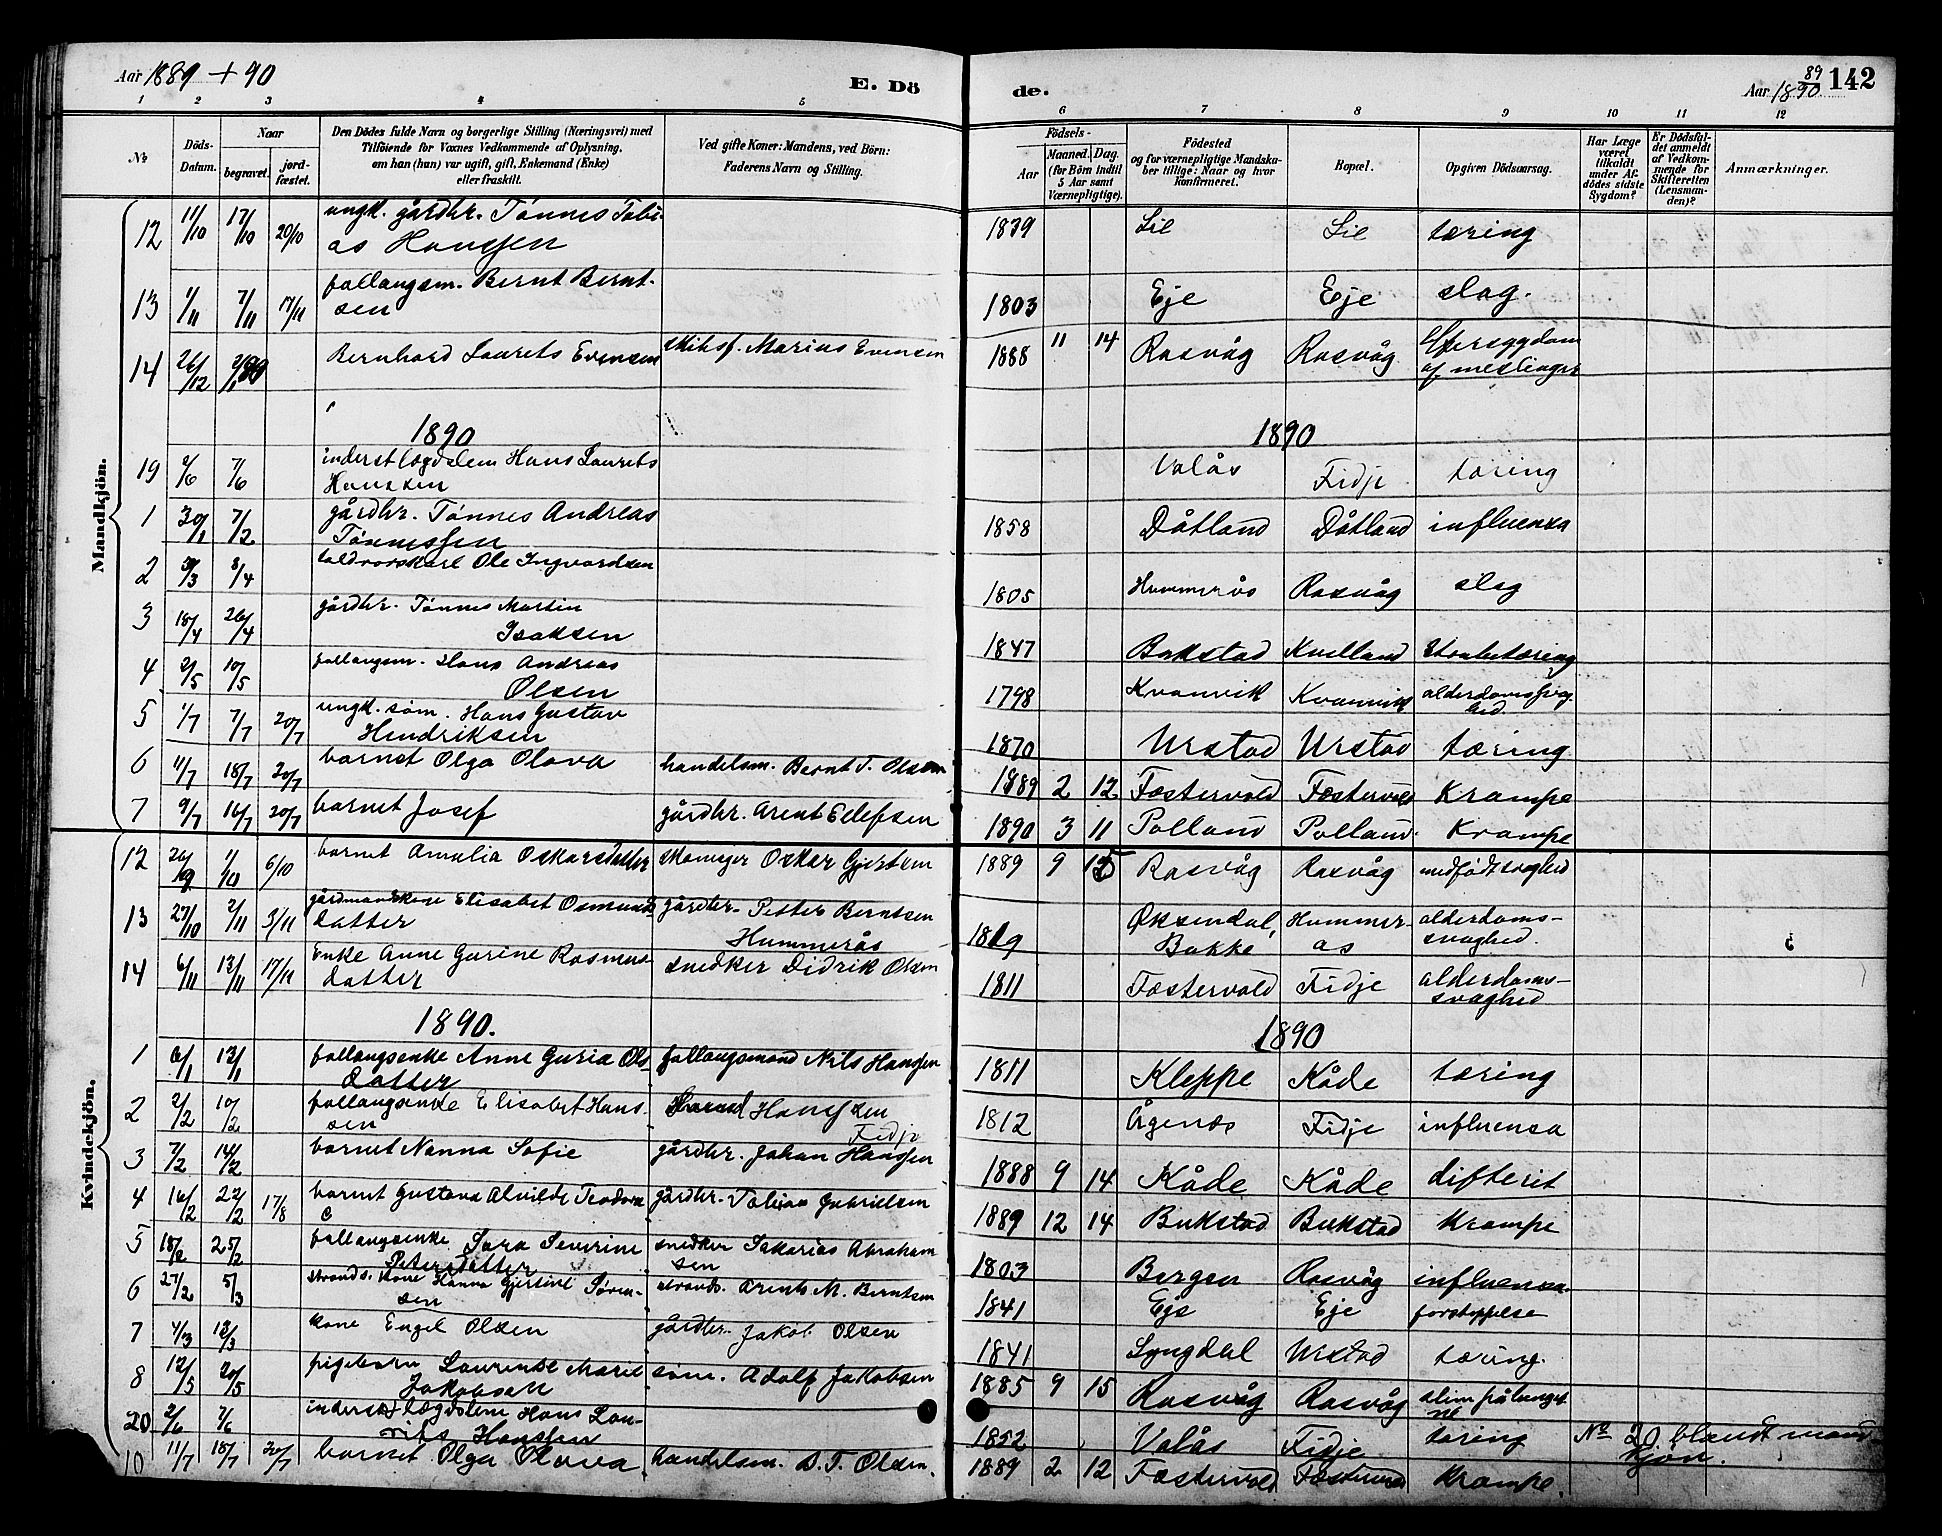 Aar 1889 + 90 E. Dö de. Aar 1890 89 142
1 2 3 4 5 6 7 8 9 10 11 12
No Döds-Datum. Naar begravet. jordfæstet. Den Dödes fulde Navn og borgerlige Stilling (Næringsvei) med Tilföiende for Voxnes Vedkommende af Oplysning, om han (hun) var ugift, gift, Enkemand (Enke) eller fraskilt. Ved gifte Koner: Mandens, ved Börn: Faderens Navn og Stilling. Födsels- Aar Maaned. Dag. (for Börn indtil 5 Aar samt Værnepligtige). Födested og for værnepligtige Mandskaber tillige: Naar og hvor konfirmeret. Bopæl. Opgiven Dödsaarsag. Har Læge været tilkaldt under Afdödes sidste Sygdom? Er Dödsfaldet anmeldt af Vedkommende for Skifteretten (Lensmanden)? Anmærkninger.
Mandkjön.
12 11/10 17/10 20/10 ungk. gårdbr. Tønnes Tobias Hanssen 1839 Lie Lie tæring
13 1/11 7/11 17/11 follaugsm. Bernt Berntsen 1803 Eje Eje slag.
14 26/12 2/1 90 Bernhard Laurets Evensen skibsf. Marius Evensen 1888 11 14 Rasvåg Rasvåg Eftersygdom af meslinger
1890 1890
19 2/6 7/6 inderst lægdslem Hans Laurets Hanssen Valås Fidje tæring
1 30/1 7/2 gårdbr. Tønnes Andreas Tønnessen 1858 Dåtland Dåtland influensa
2 31/3 8/4 toldrorskarl Ole Ingvardsen 1805 Hummerås Rasvåg slag
3 18/4 26/4 gårdbr. Tønnes Martin Isaksen 1847 Bukstad Kvelland Strubetæring
4 2/5 10/5 follaugsm. Hans Andreas Olsen 1798 Kvanvik Kvanvik alderdomssvaghed.
5 1/7 7/7 20/7 ungk. søm. Hans Gustav Hendriksen 1870 Urstad Urstad tæring
6 11/7 18/7 20/7 barnet Olga Olava handelsm. Bernt T. Olsen 1889 2 12 Fæstervold Fæstervold Krampe
7 9/7 16/7 20/7 barnet Josef gårdbr. Arent Eilefsen 1890 3 11 Polland Polland. Krampe
Kvindekjön.
12 26/9 1/10 6/10 barnet Amalia Oskarsdatter Oskar Gjertsen 1889 9 15 Rasvåg Rasvåg medfødt svaghed
13 27/10 2/11 3/11 gårdmandskone Elisabet Osmundsdatter gårdbr. Petter Berntsen Hummerås 1819 Øksendal, Bakke Hummerås alderdomssvaghed.
14 6/11 13/11 17/11 Enke Anne Gurine Rasmusdatter snedker Didrik Olsen 1811 Fæstervold Fidje alderdomssvaghed
1890. 1890
1 6/1 13/1 follaugsenke Anne Guria Olsdatter follaugsmand Nils Hanssen 1811 Kleppe Kåde tæring
2 2/2 10/2 follaugsenke Elisabet Hanssen Hanssen Fidje 1812 Ågenæs Fidje influensa
3 7/2 14/2 barnet Nanna Sofie gårdbr. Johan Hanssen 1888 9 14 Kåde Kåde difterit
4 16/2 22/2 17/8 barnet Gustava Alvilde Teodora gårdbr. Tobias Gabrielsen 1889 12 14 Bukstad Bukstad Krampe
5 18/2 25/2 follaugsenke Sara Severine Petersdatter snedker Sakarias Abrahamsen 1803 Bergen Rasvåg influensa.
6 27/2 5/3 strands. kone Hanna Gjertine Sørensen strands. Arent M. Berntsen 1841 Eje Eje forstoppelse
7 4/3 13/3 kone Engel Olsen gårdbr. Jakob Olsen 1841 Lyngdal Urstad tæring.
8 12/5 20/5 pigebarn Laurense Marie Jakobsen søm. Adolf Jakobsen 1885 9 15 Rasvåg Rasvåg slim på lungerne
20 2/6 7/6 inderst lægdslem Hans Laurits Hanssen 1852 Valås Fidje tæring No 20. blandt mandkjøn.
10 11/7 18/7 20/7 barnet Olga Olava handelsm. B. T. Olsen. 1889 2 12 Fæstervold Fæstervold Krampe.